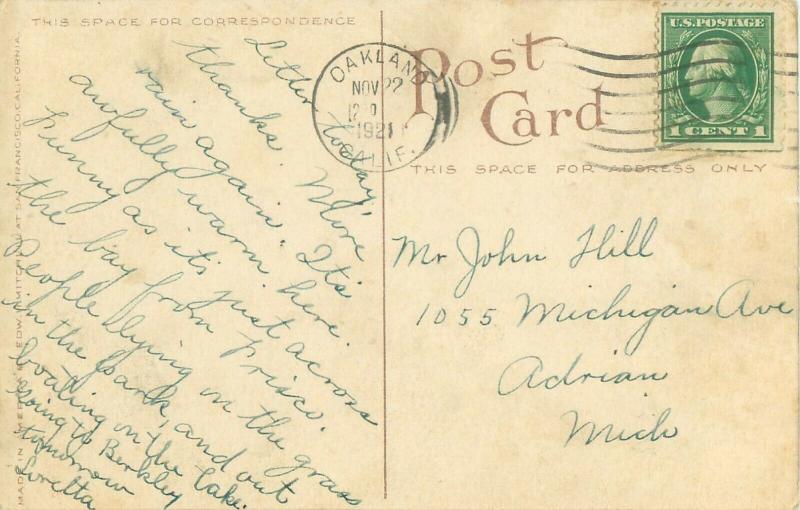 THIS SPACE FOR CORRESPONDENCE
Letter today,
thanks. More
rain again. It's
awfully warm here.
Funny as its just across
the bay from Frisco.
People lying on the grass
in the park, and out
boating on the lake.
Going to Berkley
tomorrow
Loretta
MADE IN AMERICA BY EDW. H. MITCHELL AT SAN FRANCISCO, CALIFORNIA.
OAKLAND
NOV 22
1921
CALIF.
Post
Card
U.S. POSTAGE
1 CENT 1
THIS SPACE FOR ADDRESS ONLY
Mr John Hill
1055 Michigan Ave
Adrian
Mich